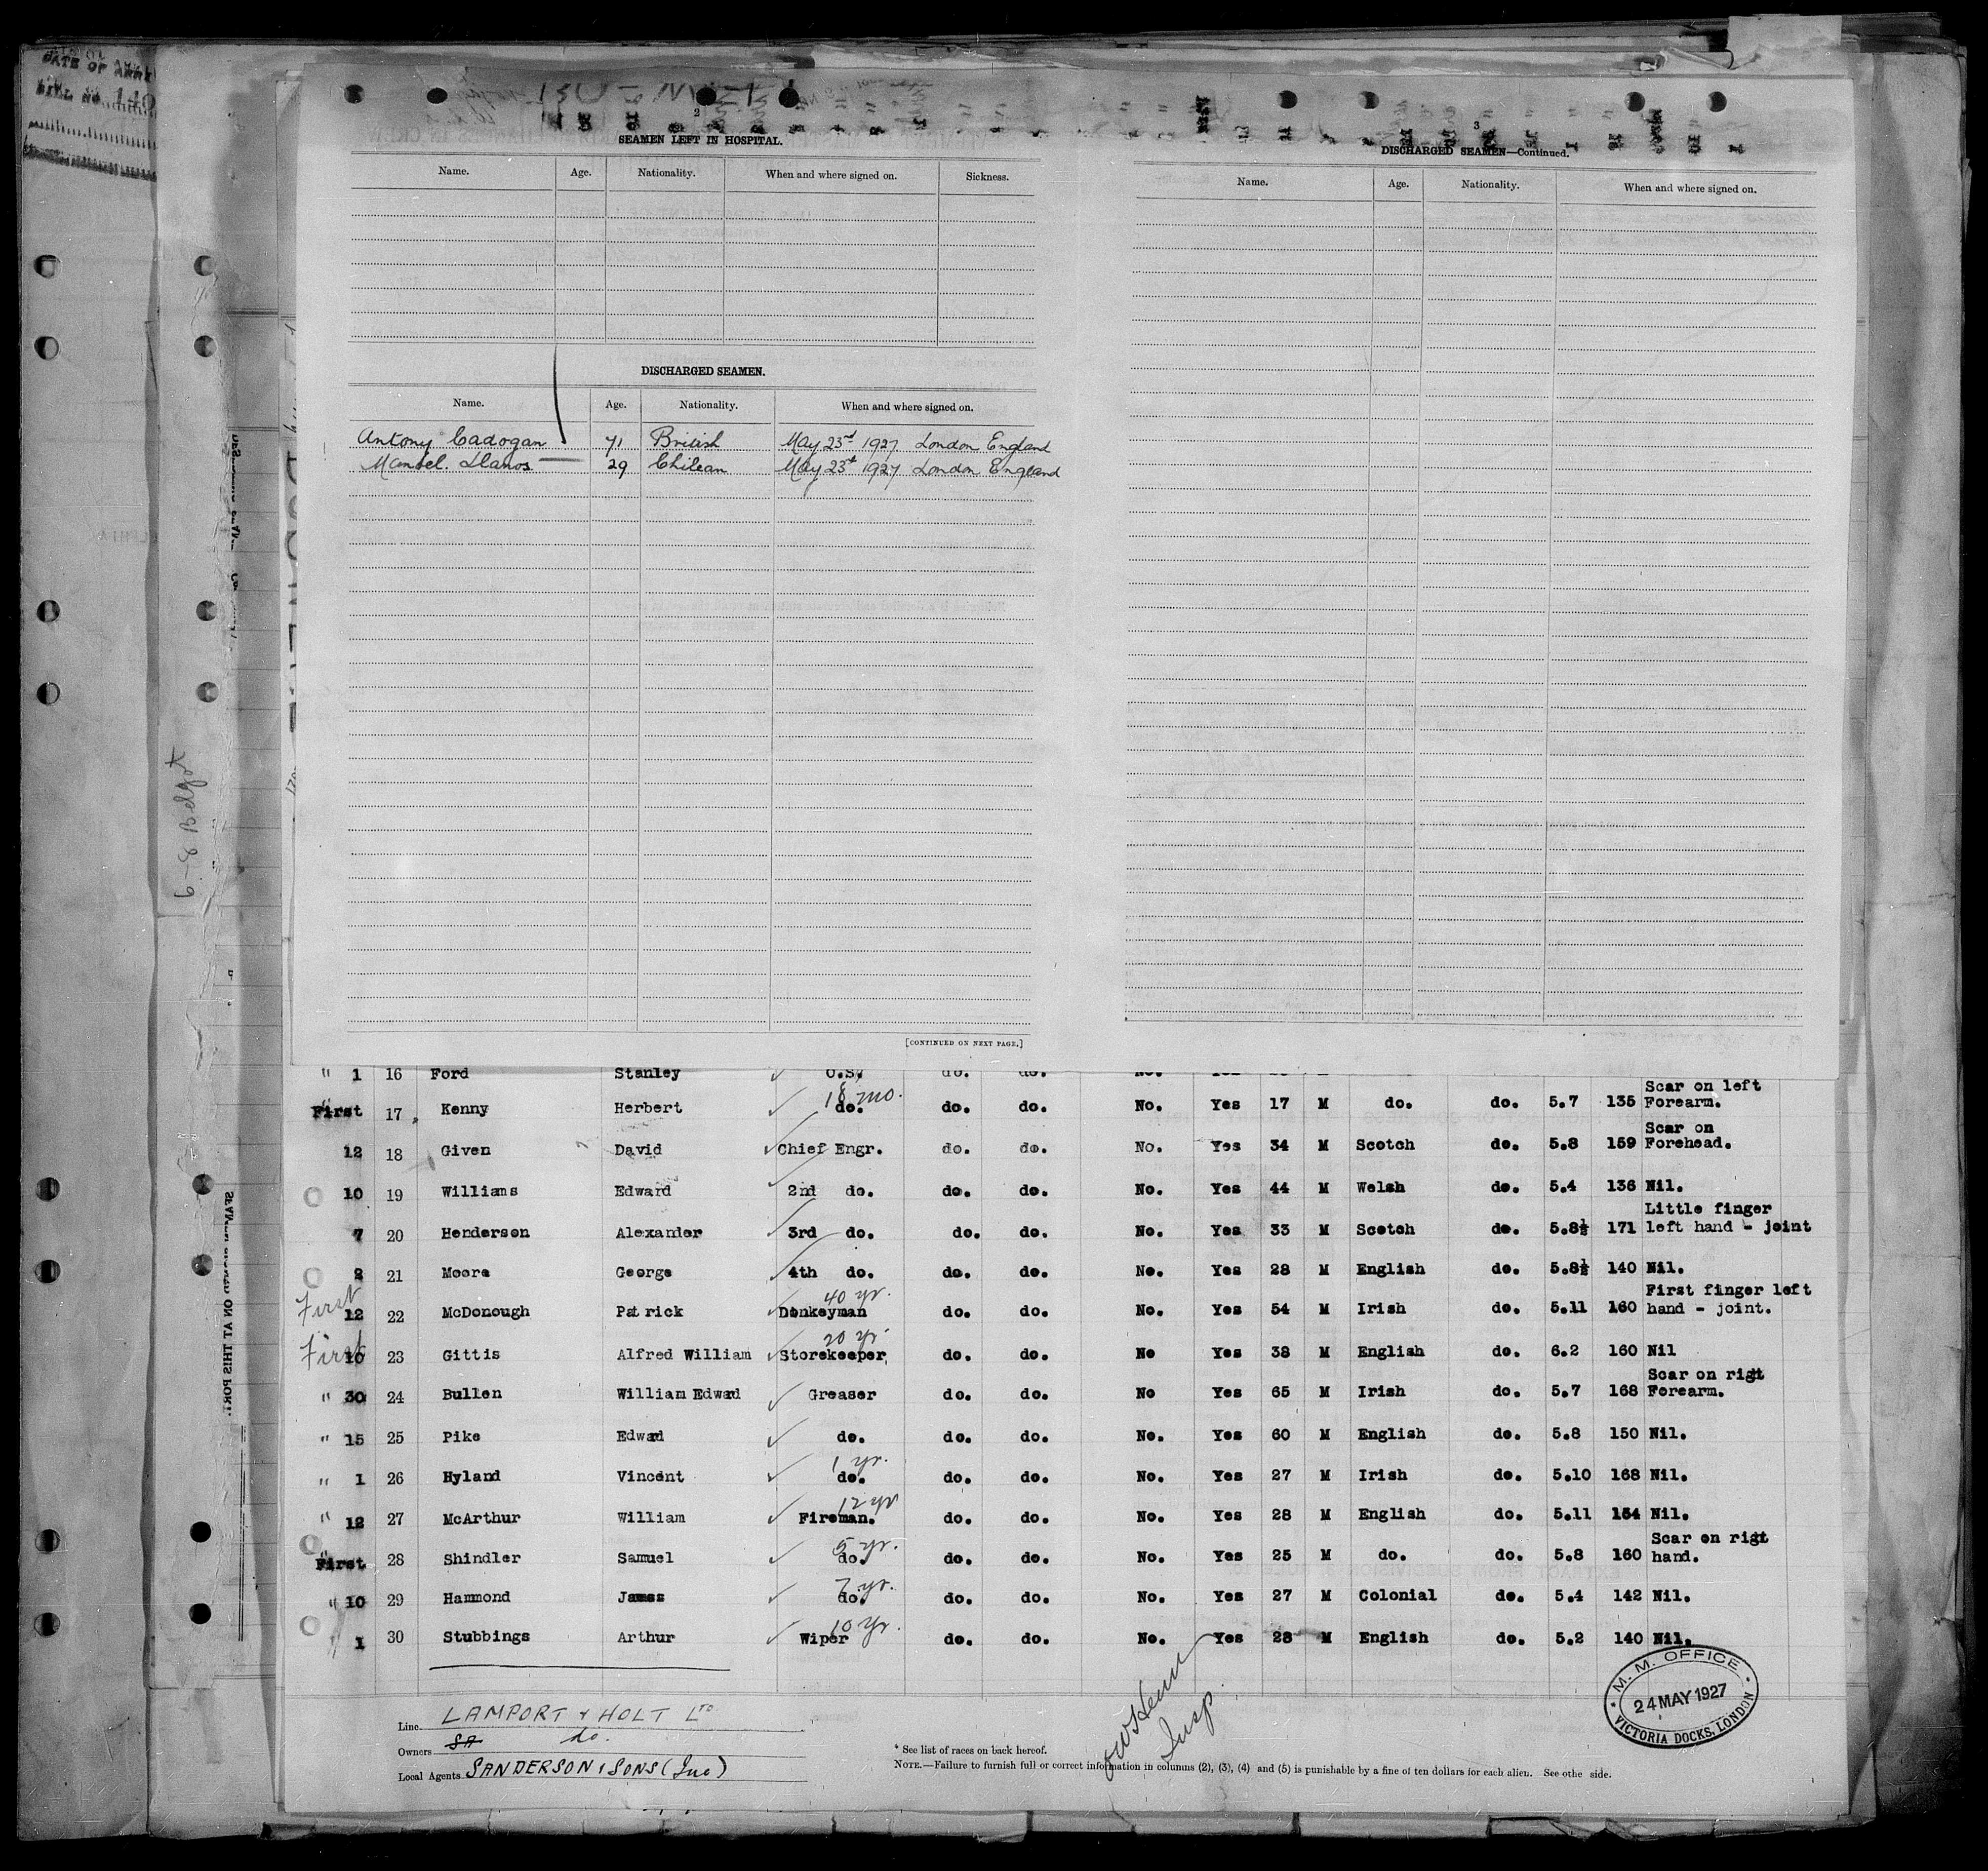 DATE OF ARRI
2
SEAMEN LEFT IN HOSPITAL.
Name. Age. Nationality. When and where signed on. Sickness.
DISCHARGED SEAMEN.
Name. Age. Nationality. When and where signed on.
Antony Cadogan 71 British May 23rd 1927 London England
Manuel. Llanos 29 Chilean May 23rd 1927 London England
[CONTINUED ON NEXT PAGE.]
3
DISCHARGED SEAMEN—Continued.
Name. Age. Nationality. When and where signed on.
6-8 Bdgot
" 1 16 Ford Stanley O.S. do. do. No. Yes
18 mo. Scar on left
First 17 Kenny Herbert do. do. do. No. Yes 17 M do. do. 5.7 135 Forearm.
Scar on
12 18 Given David Chief Engr. do. do. No. Yes 34 M Scotch do. 5.8 159 Forehead.
10 19 Williams Edward 2nd do. do. do. No. Yes 44 M Welsh do. 5.4 136 Nil.
Little finger
7 20 Henderson Alexander 3rd do. do. do. No. Yes 33 M Scotch do. 5.8½ 171 left hand - joint
2 21 Moore George 4th do. do. do. No. Yes 28 M English do. 5.8½ 140 Nil.
First 40 yr. First finger left
12 22 McDonough Patrick Donkeyman do. do. No. Yes 54 M Irish do. 5.11 160 hand - joint.
First 20 yr.
10 23 Gittis Alfred William Storekeeper do. do. No Yes 38 M English do. 6.2 160 Nil
Scar on right
" 30 24 Bullen William Edward Greaser do. do. No Yes 65 M Irish do. 5.7 168 Forearm.
" 15 25 Pike Edward do. do. do. No. Yes 60 M English do. 5.8 150 Nil.
1 yr.
" 1 26 Hyland Vincent do. do. do. No. Yes 27 M Irish do. 5.10 168 Nil.
12 yr
" 12 27 McArthur William Fireman. do. do. No. Yes 28 M English do. 5.11 154 Nil.
5 yr. Scar on right
First 28 Shindler Samuel do. do. do. No. Yes 25 M do. do. 5.8 160 hand.
7 yr.
" 10 29 Hammond James do. do. do. No. Yes 27 M Colonial do. 5.4 142 Nil.
10 yr.
" 1 30 Stubbings Arthur Wiper do. do. No. Yes 28 M English do. 5.2 140 Nil.
Line LAMPORT & HOLT LTD
Owners do.
Local Agents SANDERSON & SONS (Inc)
Insp.
* See list of races on back hereof.
NOTE.—Failure to furnish full or correct information in columns (2), (3), (4) and (5) is punishable by a fine of ten dollars for each alien. See othe side.
M. M. OFFICE
24 MAY 1927
VICTORIA DOCKS, LONDON